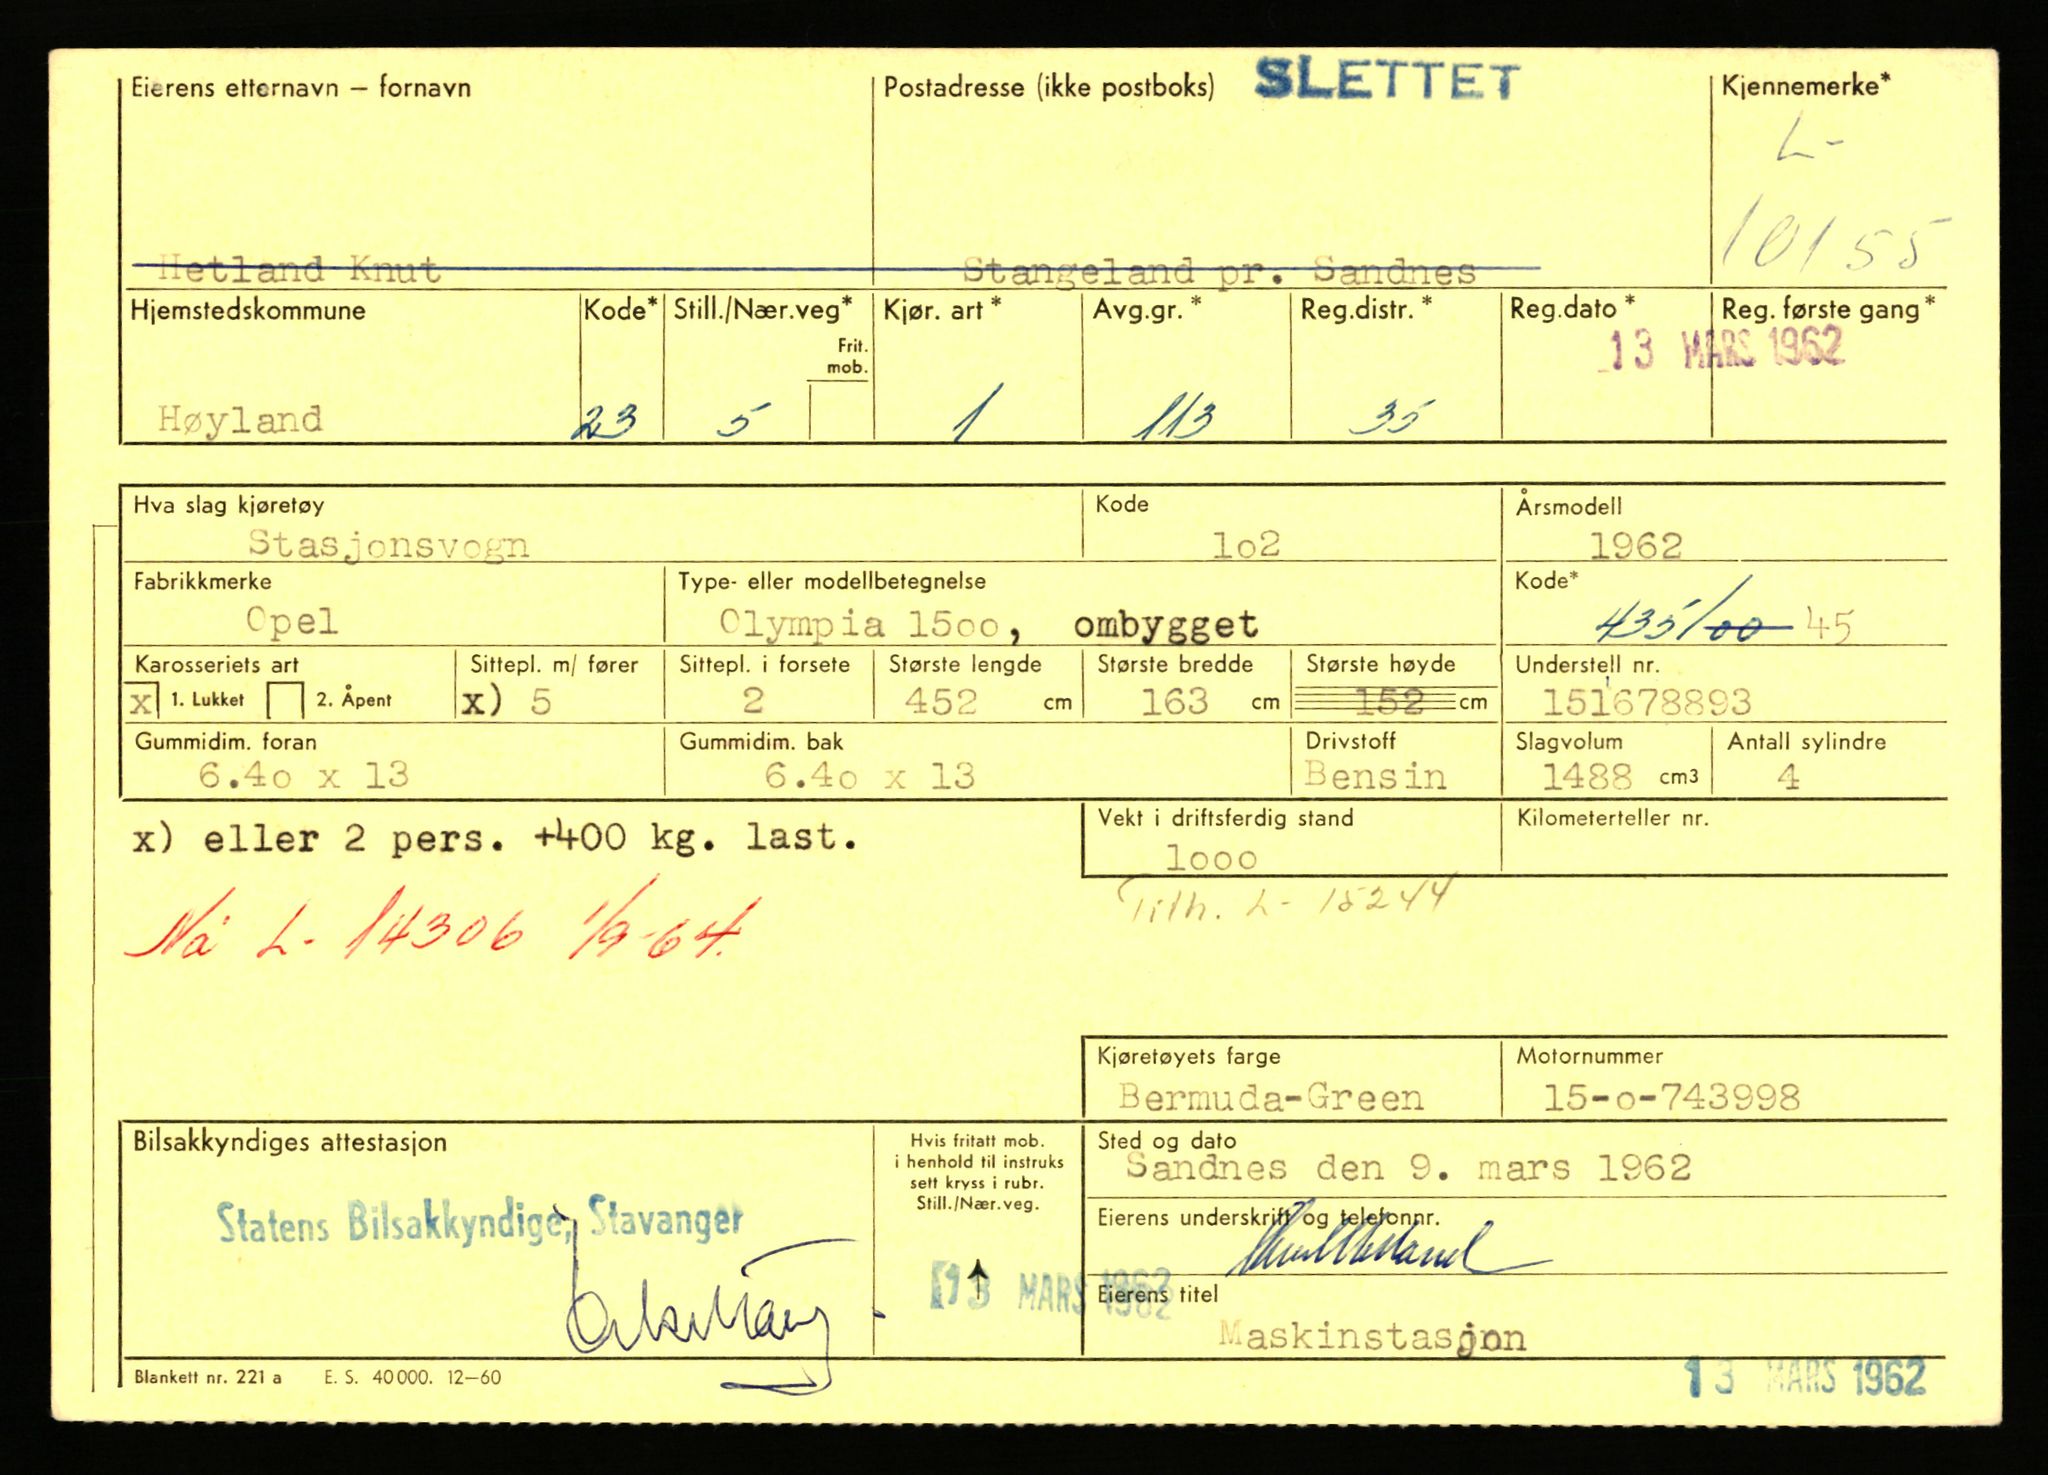 Eierens etternavn – fornavn
Postadresse (ikke postboks) SLETTET
Kjennemerke*
L-
10155
Hetland Knut
Stangeland pr. Sandnes
Hjemstedskommune Kode* Still./Nær.veg* Kjør. art* Avg.gr.* Reg.distr.* Reg.dato* Reg. første gang*
Frit.
mob.
13 MARS 1962
Høyland 23 5 1 113 35
Hva slag kjøretøy Kode Årsmodell
Stasjonsvogn 1o2 1962
Fabrikkmerke Type- eller modellbetegnelse Kode*
Opel Olympia 15oo, ombygget 435/00 45
Karosseriets art Sittepl. m/ fører Sittepl. i forsete Største lengde Største bredde Største høyde Understell nr.
x 1. Lukket 2. Åpent x) 5 2 452 cm 163 cm 152 cm 151678893
Gummidim. foran Gummidim. bak Drivstoff Slagvolum Antall sylindre
6.4o x 13 6.4o x 13 Bensin 1488 cm3 4
x) eller 2 pers. +400 kg. last.
Vekt i driftsferdig stand Kilometerteller nr.
1ooo
Tilh. L- 15244
Nå L- 14306 1/9-64.
Kjøretøyets farge Motornummer
Bermuda-Green 15-o-743998
Bilsakkyndiges attestasjon
Hvis fritatt mob.
i henhold til instruks
sett kryss i rubr.
Still./Nær.veg.
Sted og dato
Sandnes den 9. mars 1962
Statens Bilsakkyndige, Stavanger
Eierens underskrift og telefonnr.
Knut Hetland
13 MARS 1962
Eierens titel
Maskinstasjon
Blankett nr. 221 a E. S. 40 000. 12–60
13 MARS 1962